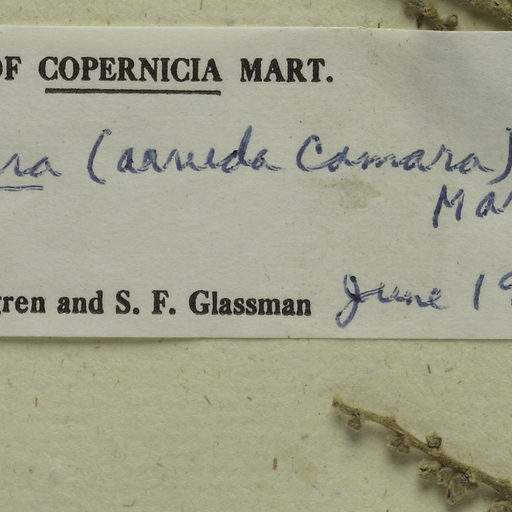 OF COPERNICIA MART.
ra (arruda Camara)
Mar
gren and S. F. Glassman June 19